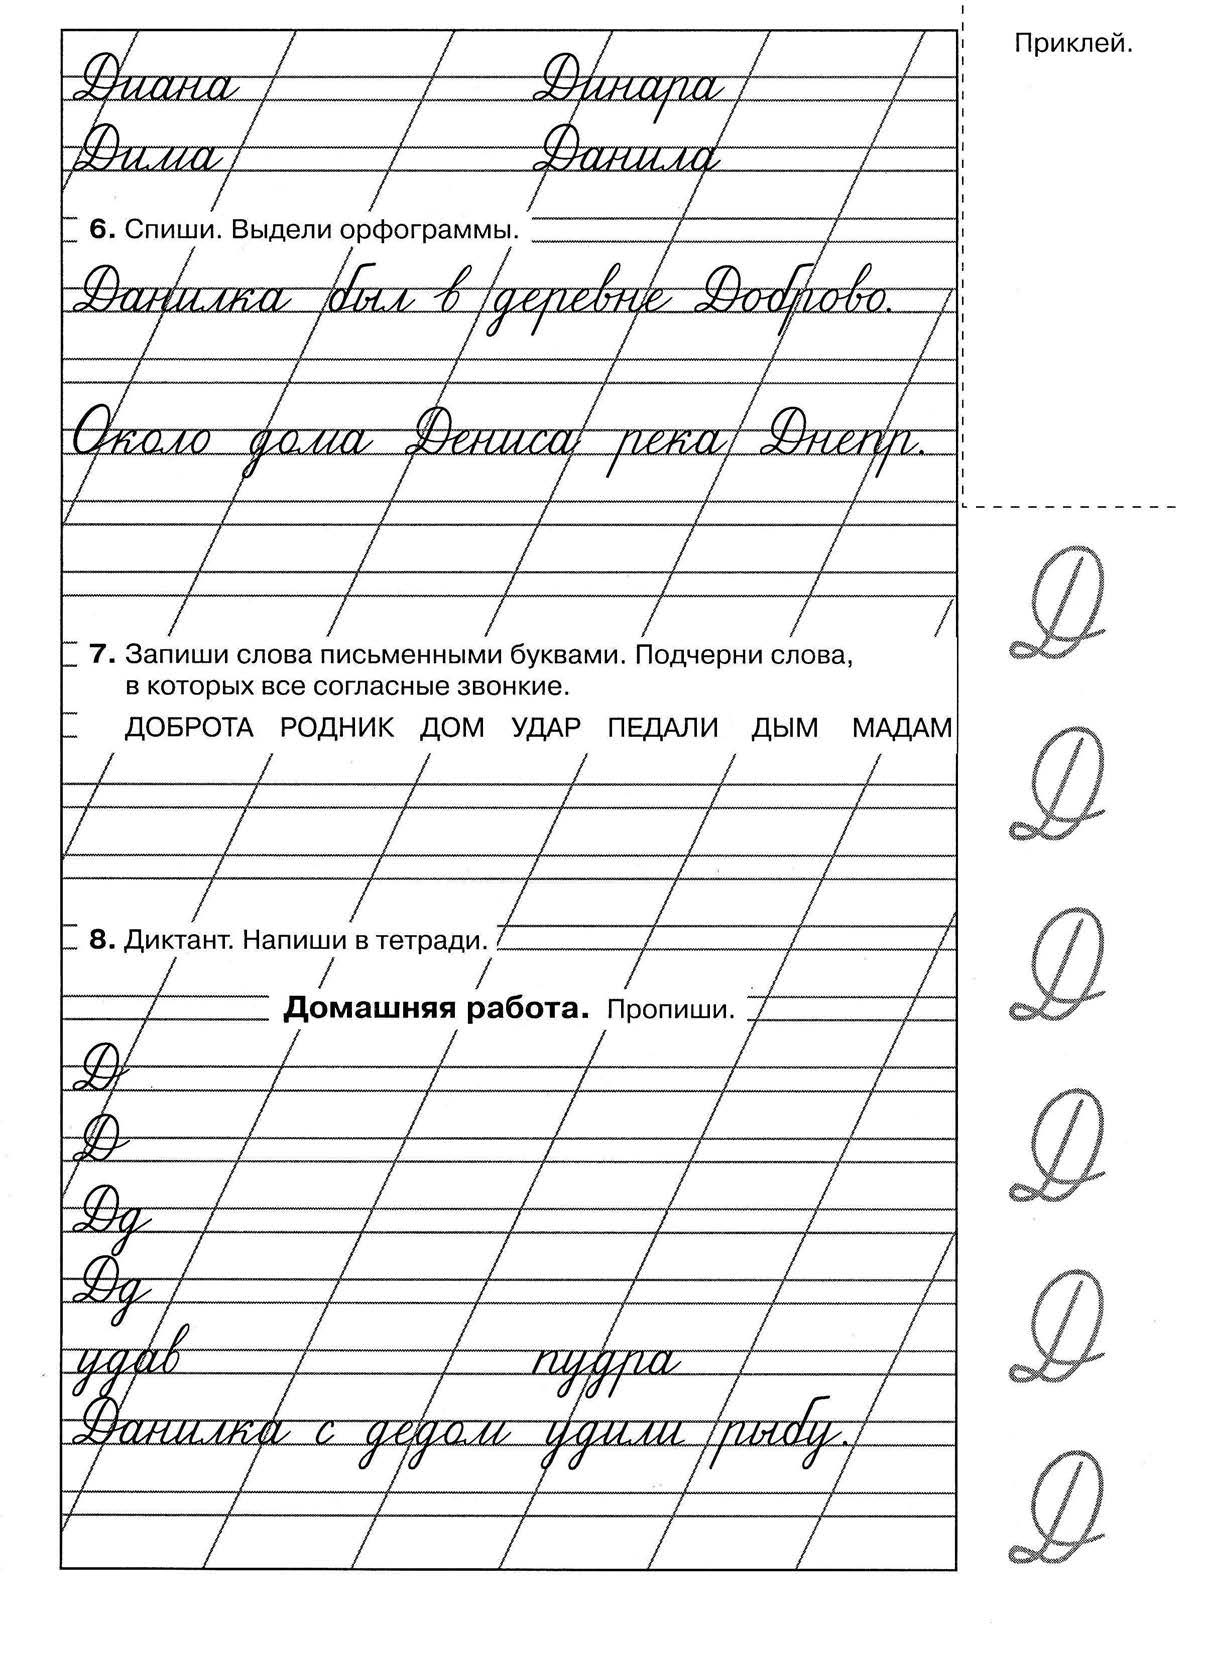 Приклей.
Диана Динара
Дима Данила
6. Спиши. Выдели орфограммы.
Данилка был в деревне Доброво.
Около дома Дениса река Днепр.
Д
7. Запиши слова письменными буквами. Подчерни слова,
в которых все согласные звонкие.
ДОБРОТА РОДНИК ДОМ УДАР ПЕДАЛИ ДЫМ МАДАМ
Д
8. Диктант. Напиши в тетради.
Д
Домашняя работа. Пропиши.
Д
Д
Д
Дд
Дд
Д
удав пудра
Данилка с дедом удили рыбу.
Д